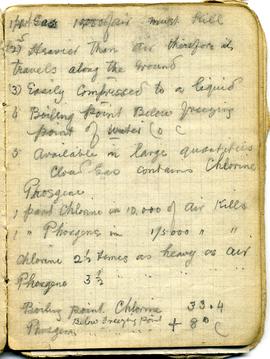 1 part Gas 10,000 of air must Kill
2) Heavier than air therefore it
travels along the Ground
3) Easily Compressed to a liquid
4 Boiling Point Below freezing
point of water (0 C
5 Available in large quantities
Cloud Gas contains Chlorine
Phosgene
1 part Chlorine in 10,000 of Air Kills
1 " Phosgene in 1/5000 " "
Chlorine 2½ times as heavy as air
Phosgene 3½
Boiling point Chlorine 33.4
Below freezing Point
Phosgene + 8° C